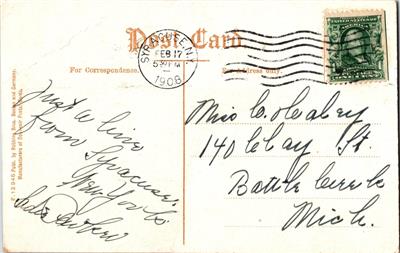 Post Card.
For Correspondence.
For Address only.
SYRACUSE, N.Y.
FEB 17
5 30 PM
1908
UNITED STATES OF AMERICA
Just a line
from Syracuse
New York
Miss C. Healey
140 Clay St.
Battle Creek
Mich.